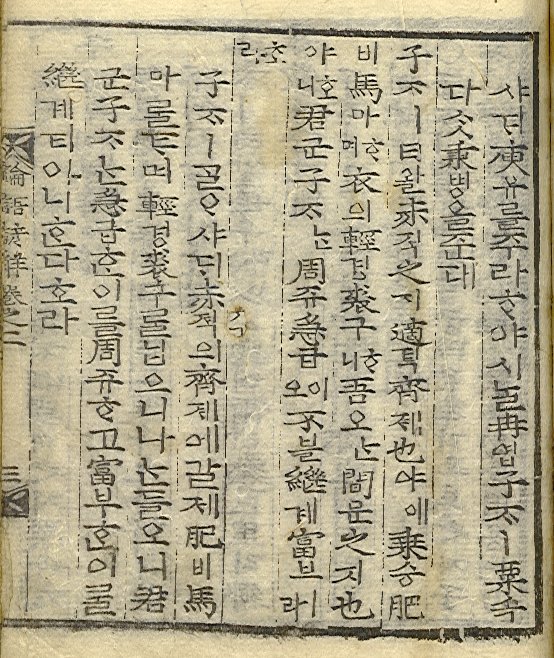 샤ᄃᆡ庾유를주라ᄒᆞ야시ᄂᆞᆯ冉염子ᄌᆞㅣ粟속
다ᄉᆞᆺ秉병을준대
子ᄌᆞㅣ曰왈赤젹之지適뎍齊졔也야애乘승肥
비馬마ᄒᆞ며衣의輕경裘구ᄒᆞ니吾오ᄂᆞᆫ聞문之지也
야호니君군子ᄌᆞᄂᆞᆫ周쥬急급이오不불繼계富부ㅣ라
호라
子ᄌᆞㅣᄀᆞᆯᄋᆞ샤ᄃᆡ赤젹의齊졔예갈제肥비馬
마ᄅᆞᆯᄐᆞ며輕경裘구ᄅᆞᆯ닙으니나ᄂᆞᆫ들오니君
군子ᄌᆞᄂᆞᆫ急급ᄒᆞᆫ이를周쥬ᄒᆞ고富부ᄒᆞᆫ이ᄅᆞᆯ
繼계티아니ᄒᆞᆫ다호라
論語諺解卷之二
三